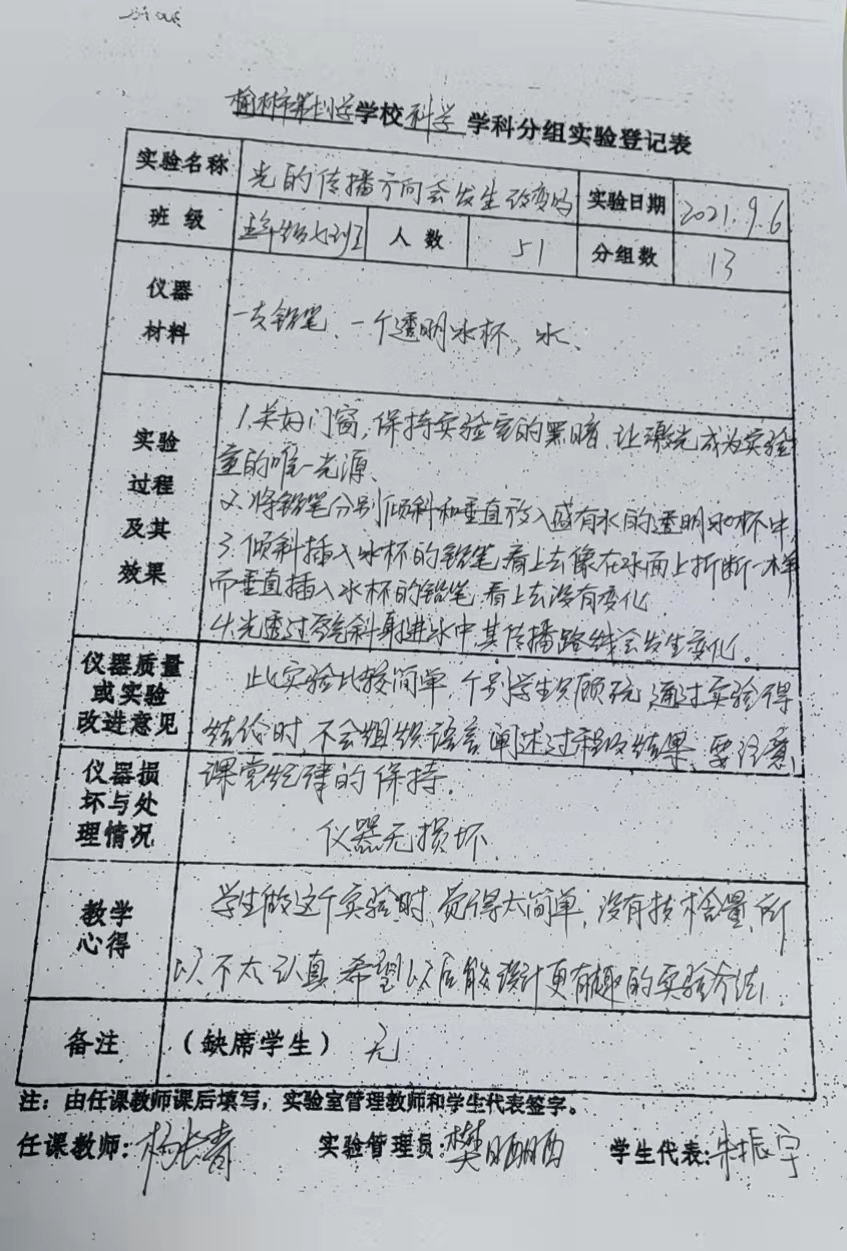 榆林市第十小学学校科学学科分组实验登记表
实验名称 光的传播方向会发生改变吗 实验日期 2021.9.6
班 级 五年级 人 数 51 分组数 13
仪器
材料
一支铅笔、一个透明水杯，水、
实验
过程
及其
效果
1.关好门窗，保持实验室的黑暗，让激光成为实验
室的唯一光源、
2.将铅笔分别倾斜和垂直放入盛有水的透明水杯中，
3.倾斜插入水杯的铅笔，看上去像在水面上折断一样
而垂直插入水杯的铅笔，看上去没有变化
4.光透过空气斜射进水中，其传播路线会发生变化。
仪器质量
或实验
改进意见
此实验比较简单，个别学生只顾玩，通过实验得
结论时，不会组织语言，阐述过程及结果，要注意
课堂纪律的保持．
仪器损
坏与处
理情况
仪器无损坏
教学
心得
学生做这个实验时，觉得太简单，没有技术含量，所
以，不太认真，希望以后能设计更有趣的实验方法，
备注 （缺席学生） 无
注：由任课教师课后填写，实验室管理教师和学生代表签字。
任课教师：杨长青 实验管理员：樊 学生代表：朱振宇